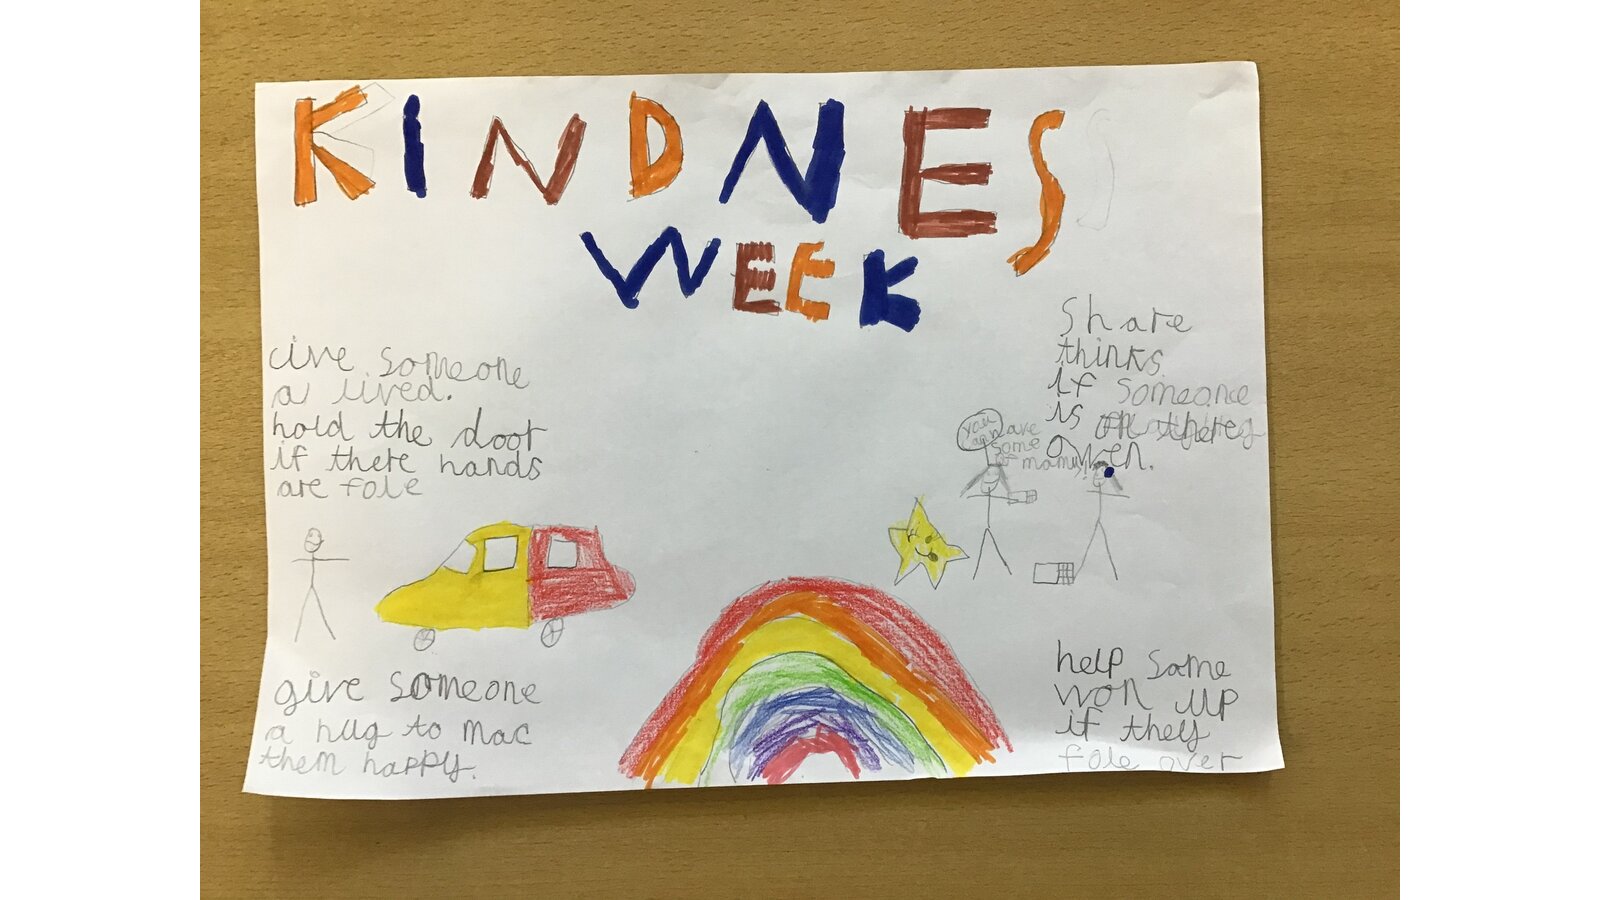 KINDNES
WEEK
Give someone
a lived.
hold the door
if there hands
are fole
Share
thinks
if someone
is on there
owen.
you
have
some
of mamy
give someone
a hug to mac
them happy.
help some
won up
if they
fole over